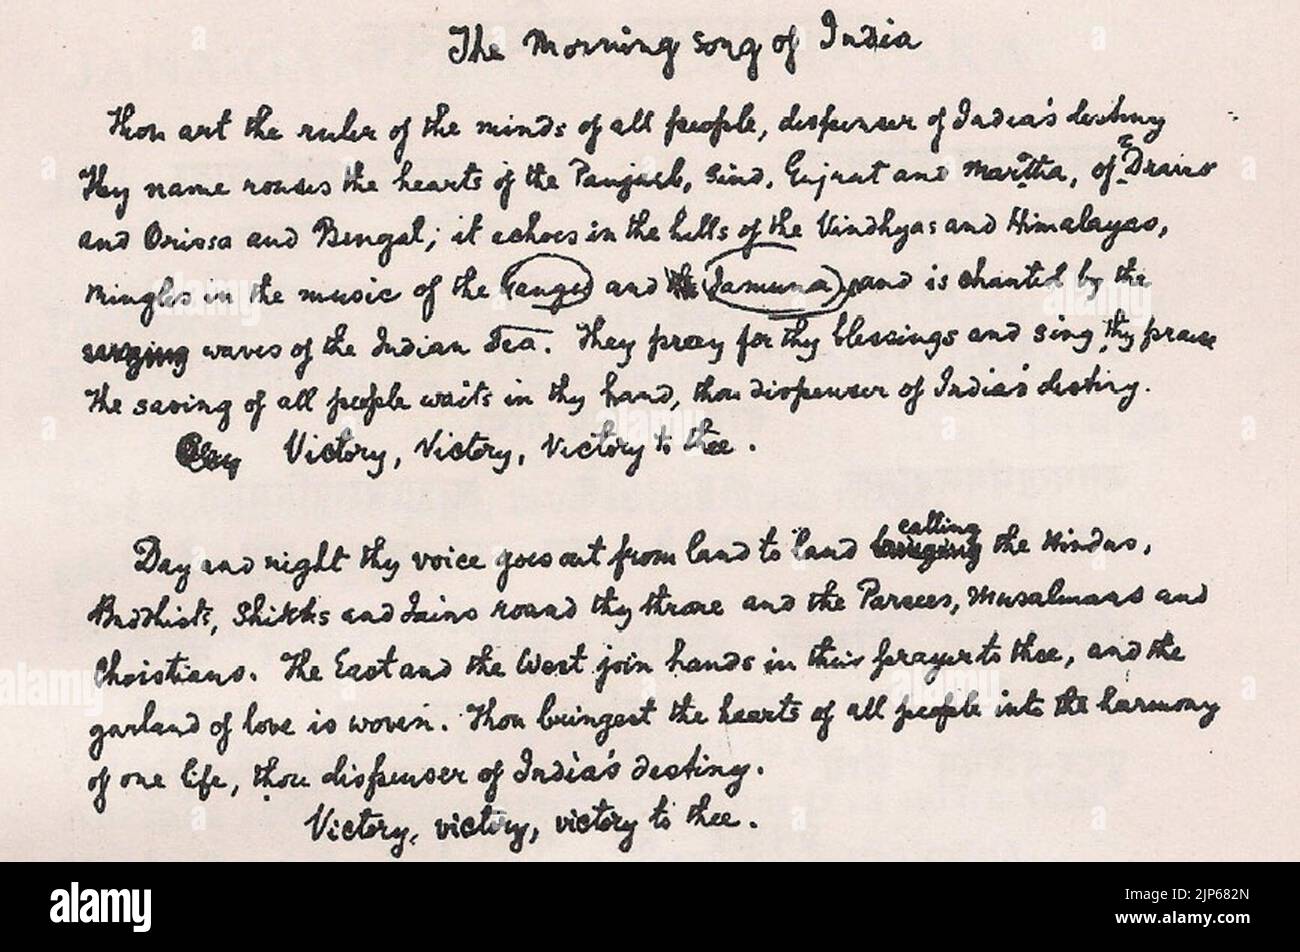 The Morning Song of India
Thou art the ruler of the minds of all people, dispenser of India's destiny
Thy name rouses the hearts of the Panjaub, Sind, Gujrat and Maratha, of Dravid
and Orissa and Bengal; it echoes in the hills of the Vindhyas and Himalayas,
mingles in the music of the Ganges and the Jamuna and is chanted by the
surging waves of the Indian Sea. They pray for thy blessings and sing thy praise
The saving of all people waits in thy hand, thou dispenser of India's destiny.
Victory, Victory, Victory to thee.
calling
Day and night thy voice goes out from land to land bringing the Hindus,
Budhists, Shikhs and Jains round thy throne and the Parsees, Musalmans and
Christians. The East and the West join hands in their prayer to thee, and the
garland of love is woven. Thou bringest the hearts of all people into the harmony
of one life, thou dispenser of India's destiny.
Victory, victory, victory to thee.
alamy
Image ID: 2JP682N
www.alamy.com